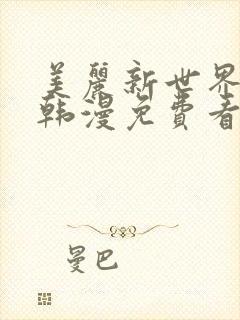 美麗新世界
韩漫免費看
曼巴